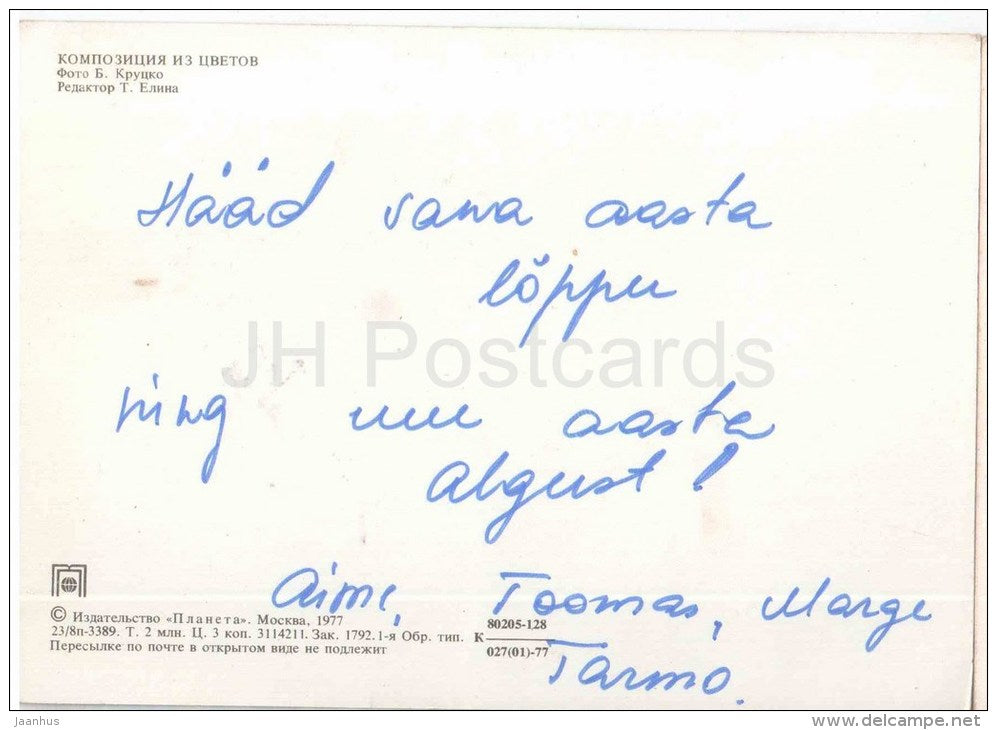 КОМПОЗИЦИЯ ИЗ ЦВЕТОВ
Фото Б. Круцко
Редактор Т. Елина
Hääd vana aasta
lõppu
JH Postcards
ning uue aasta
algust!
Aime, Toomas, Marge
Tarmo.
© Издательство «Планета». Москва, 1977
23/8п-3389. Т. 2 млн. Ц. 3 коп. 3114211. Зак. 1792. 1-я Обр. тип.
Пересылке по почте в открытом виде не подлежит
К 80205-128
027(01)-77
jaanhus
www.delcampe.net